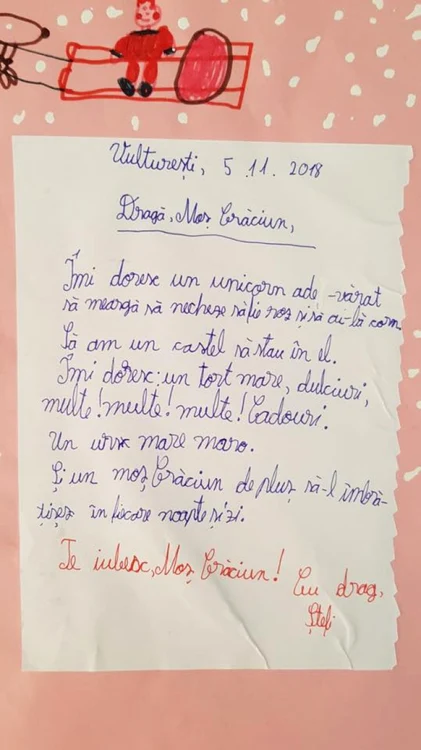 Vulturești, 5 11. 2018
Dragă, Moș Crăciun,
Îmi doresc un unicorn ade-vărat
să meargă să necheze să fie roz și să ai-bă corn
Să am un castel să stau în el.
Îmi doresc: un tort mare, dulciuri,
multe! multe! multe! Cadouri.
Un urs mare maro.
Și un moș Crăciun de pluș să-l îmbră-
țișez în fiecare noapte și zi.
Te iubesc, Moș Crăciun! Cu drag,
Ștefi